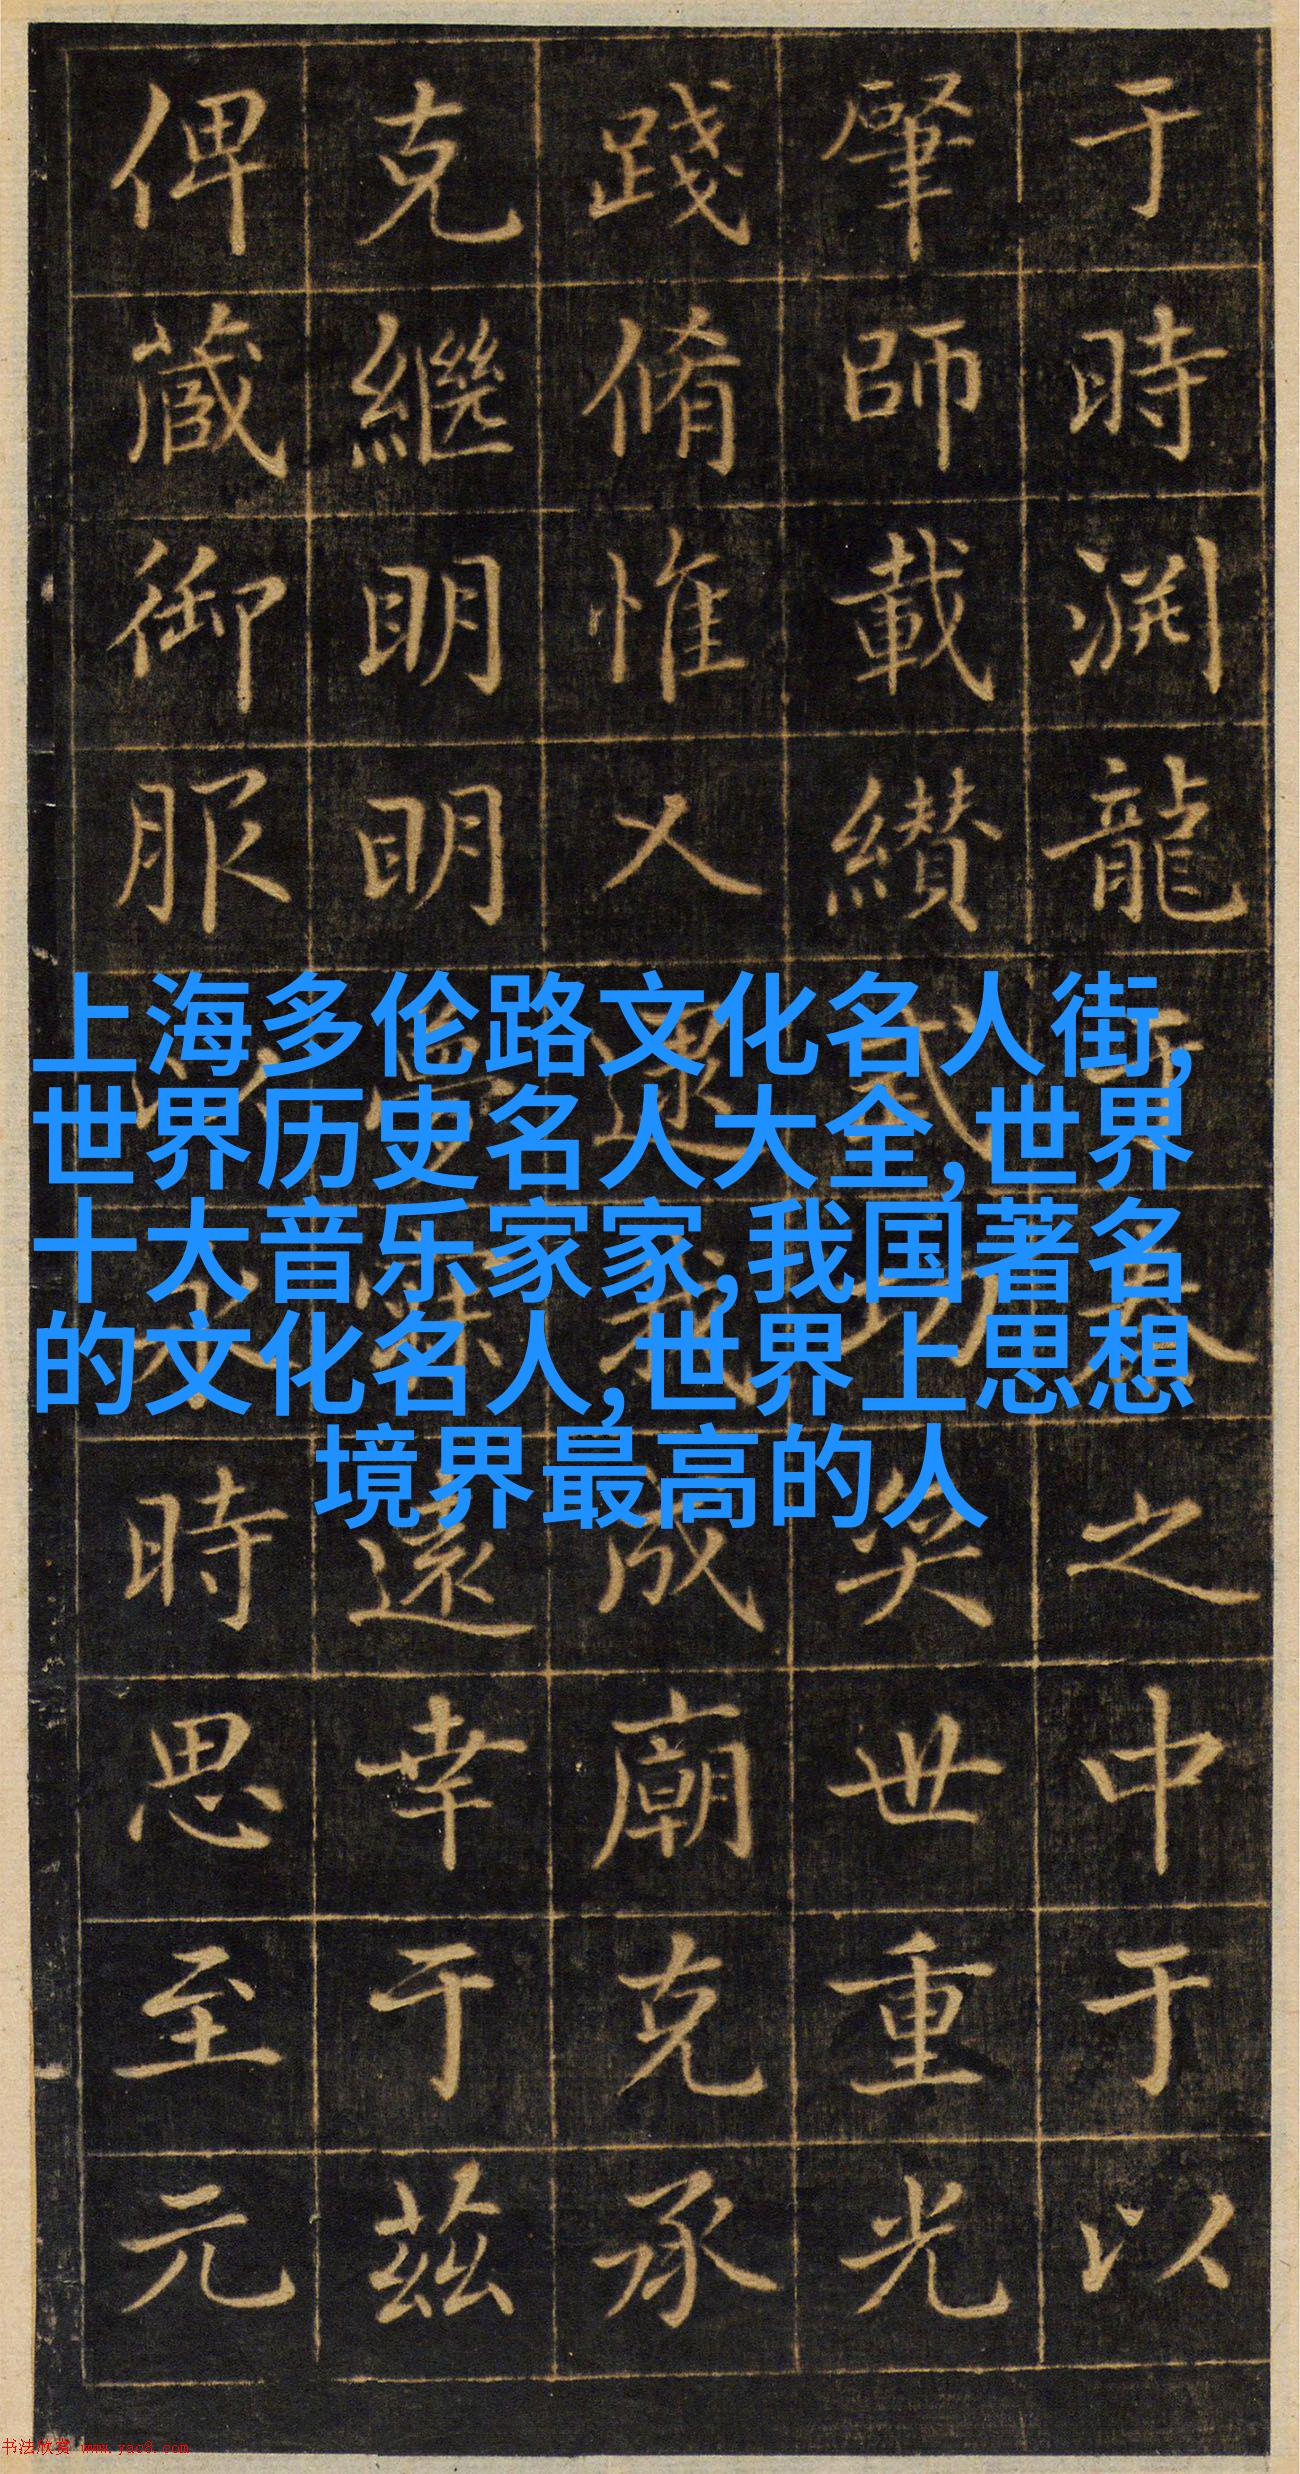 于時渊龍之中于以
肇師載纘武功奕世重光
踐脩惟乂逮我成廟克承
克繼明明遠幸于茲
俾蒇御服永時思至元
上海多伦路文化名人街,
世界历史名人大全,世界
十大音乐家家,我国著名
的文化名人,世界上思想
境界最高的人
书法欣赏 www.yac8.com